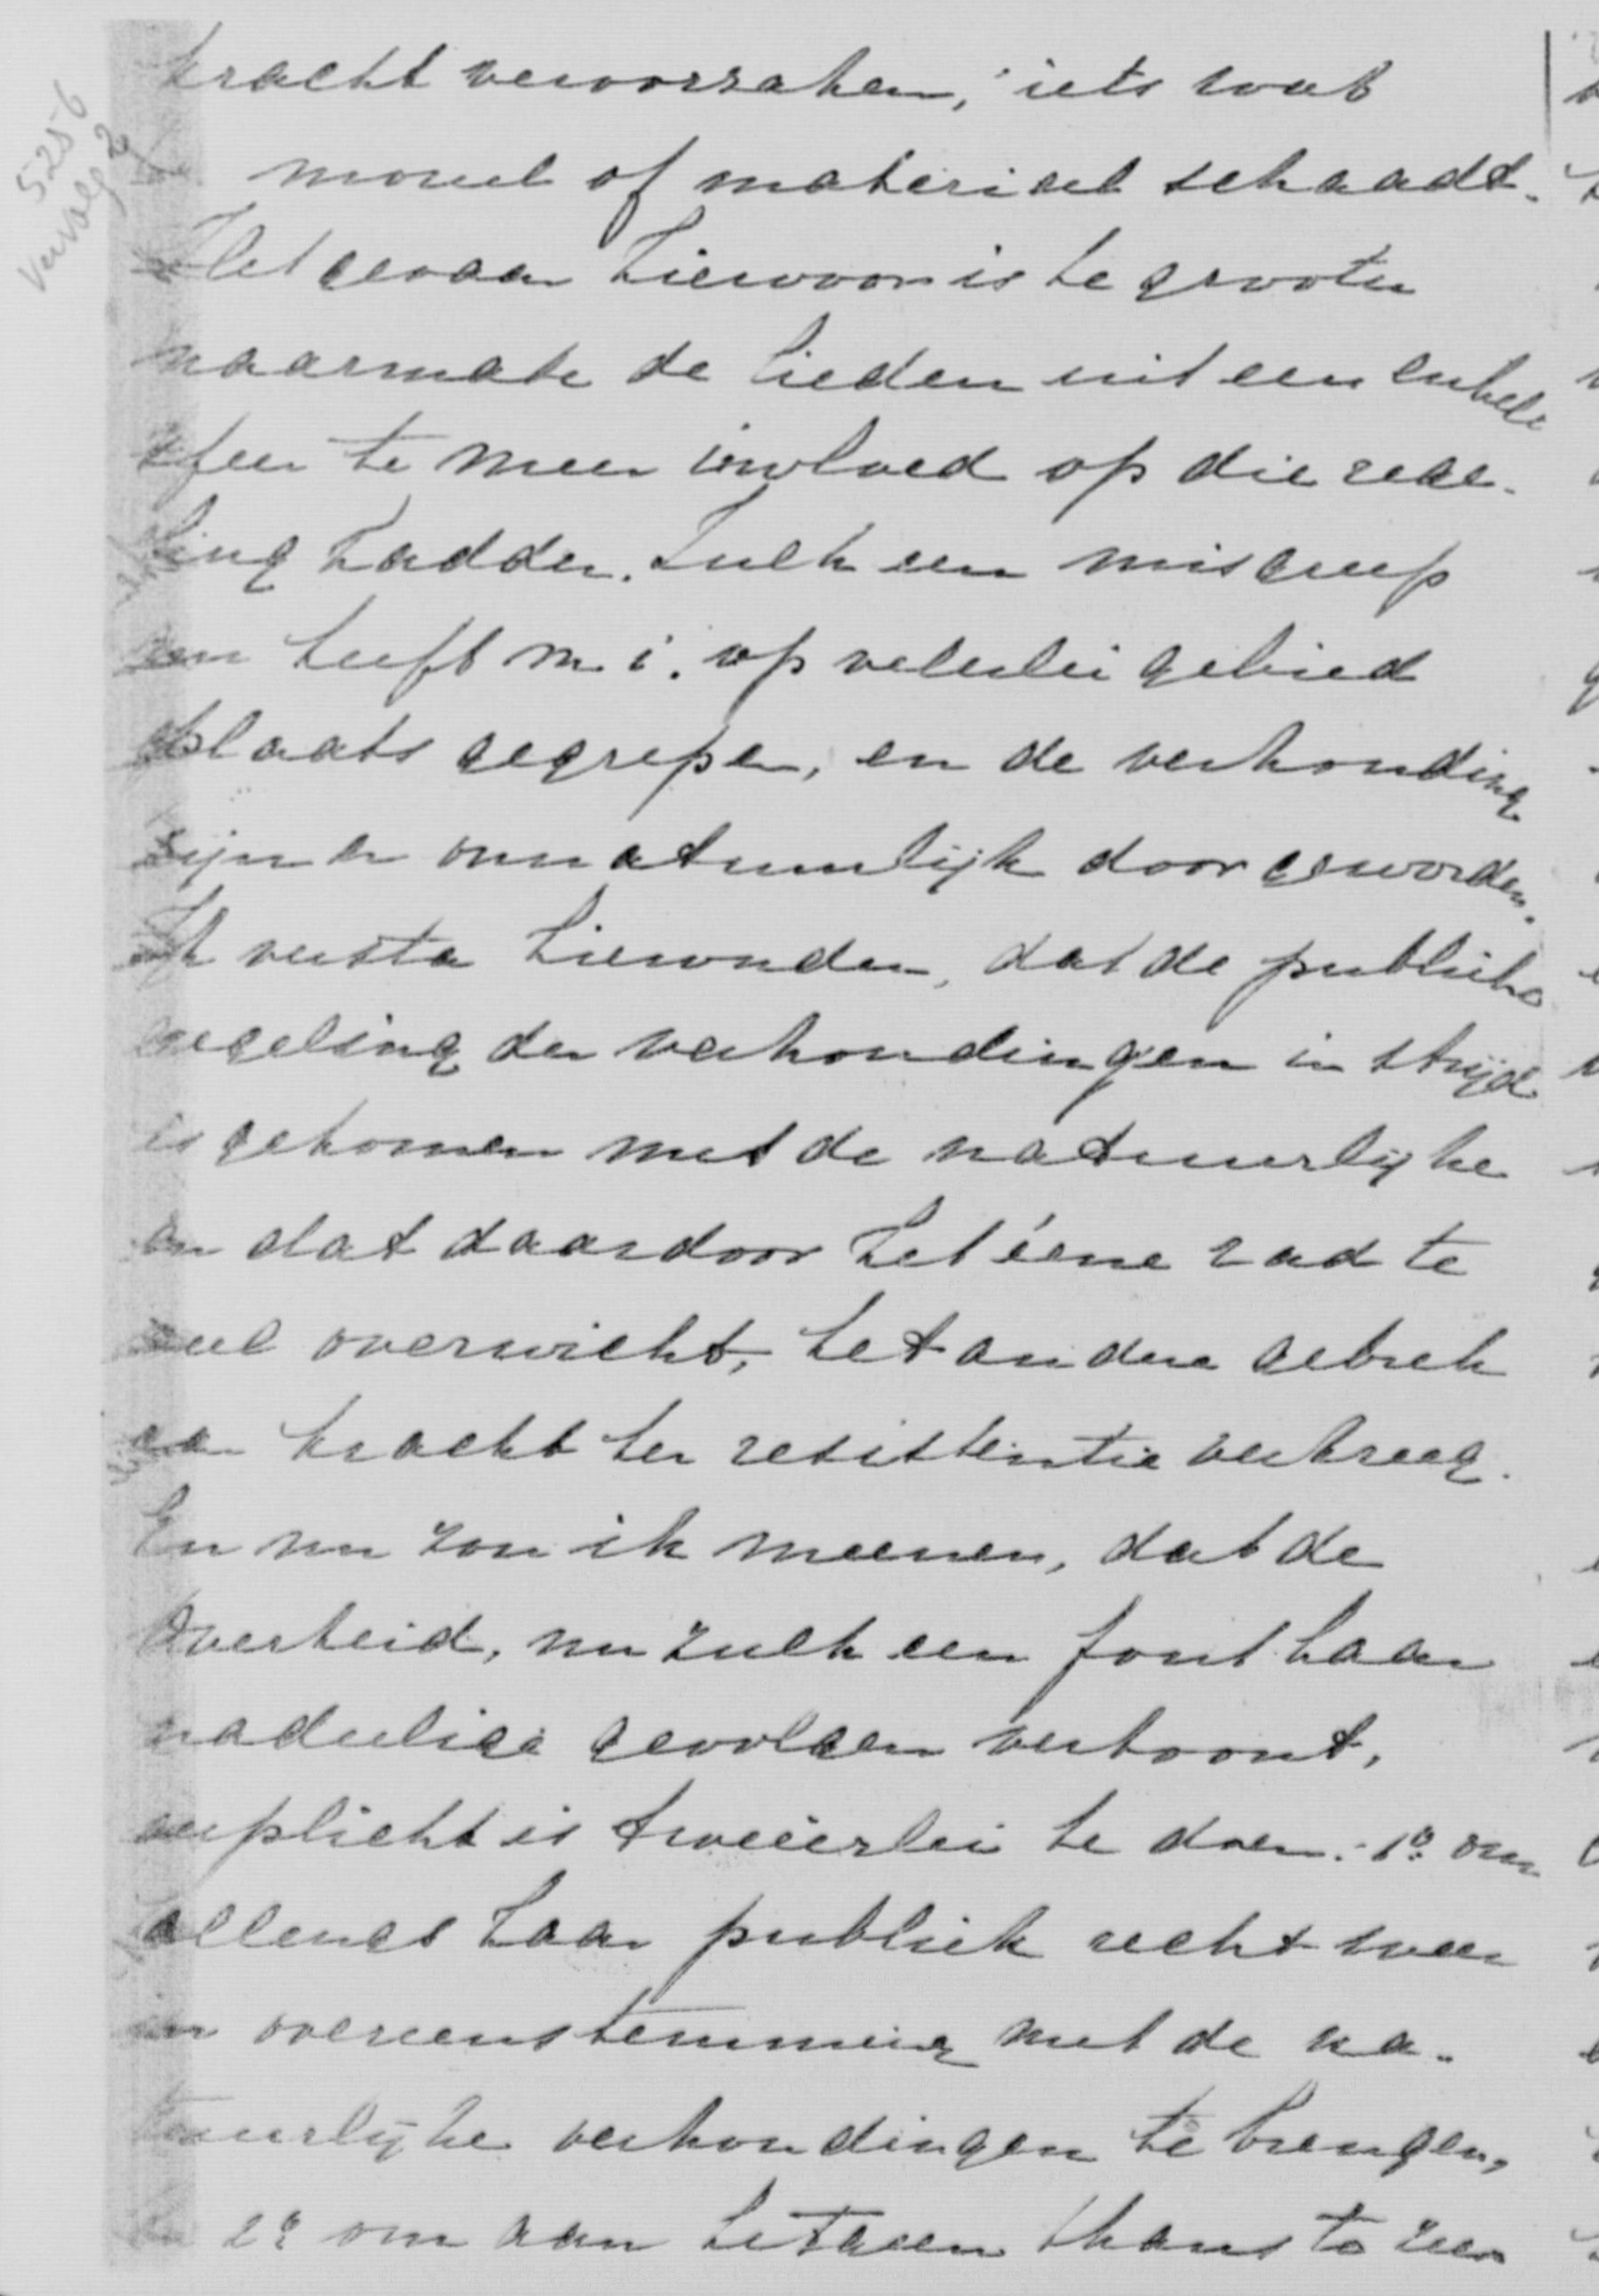 5256
vervolg 2
kracht veroorzaken, iets wat
moreel of materieel schaadt.
Het gevaar hiervoor is te grooter
naarmate de lieden uit een enkele
sfeer te meer invloed op die rege-
ling hadden. Zulk een misgreep
nu heeft m.i. op velerlei gebied
plaats gegrepen, en de verhouding
zijn er onnatuurlijk door geworden.
Ik versta hieronder, dat de publieke
regeling der verhoudingen in strijd
is gekomen met de natuurlijke
en dat daardoor het ééne rad te
veel overwicht, het andere gebrek
aan kracht ter resistentie verkreeg.
En nu zou ik meenen, dat de
Overheid, nu zulk een fout haar
nadeelige gevolgen vertoont,
verplicht is tweeërlei te doen: 1º om
allengs haar publiek recht weer
in overeenstemming met de na-
tuurlijke verhoudingen te brengen,
2º om aan hetgeen thans te zeer